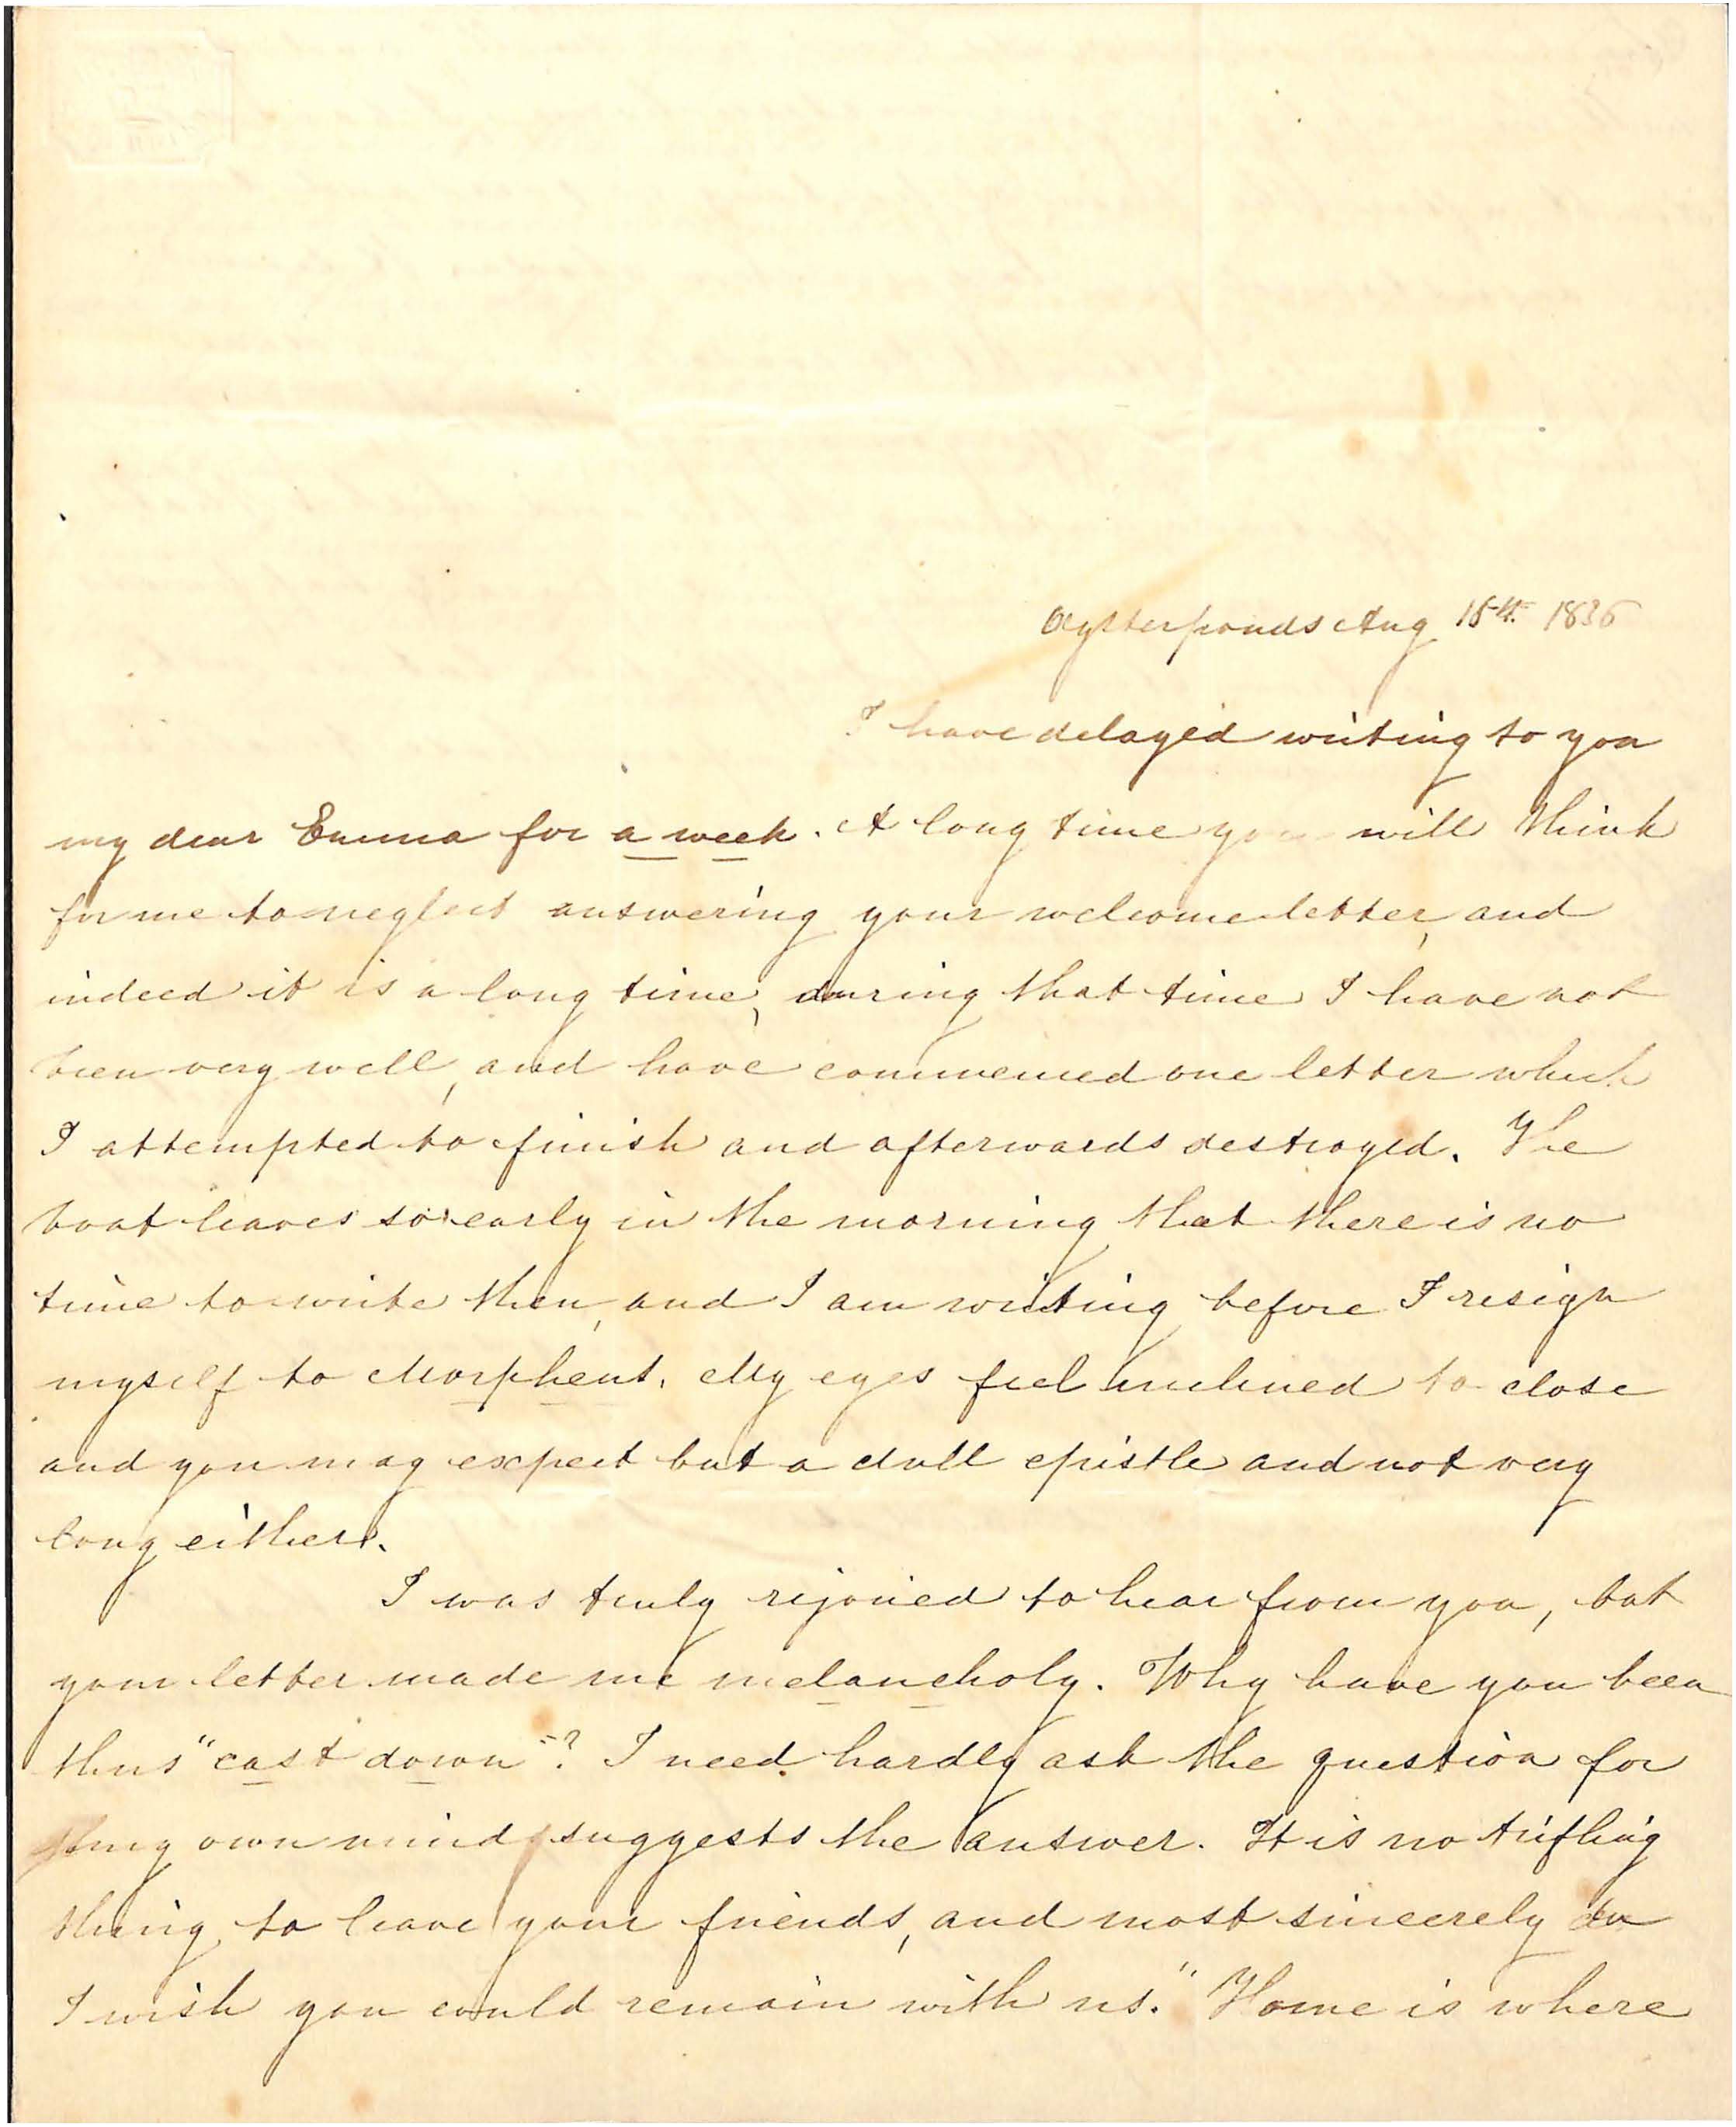 Oysterponds Aug 15th 1836
I have delayed writing to you
my dear Emma for a week. A long time you will think
for me to neglect answering your welcome letter, and
indeed it is a long time, during that time I have not
been very well, and have commenced one letter which
I attempted to finish and afterwards destroyed. The
boat leaves so early in the morning that there is no
time to write then, and I am writing before I resign
myself to Morpheus. My eyes feel inclined to close
and you may expect but a dull epistle and not very
long either.
I was truly rejoiced to hear from you, but
your letter made me melancholy. Why have you been
thus "cast down"? I need hardly ask the question for
my own mind suggests the answer. It is no trifling
thing to leave your friends, and most sincerely do
I wish you could remain with us. "Home is where